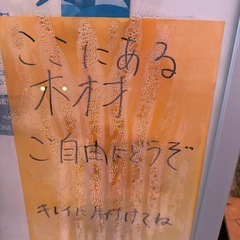 ここにある
木材
ご自由にどうぞ
キレイに片付けてね